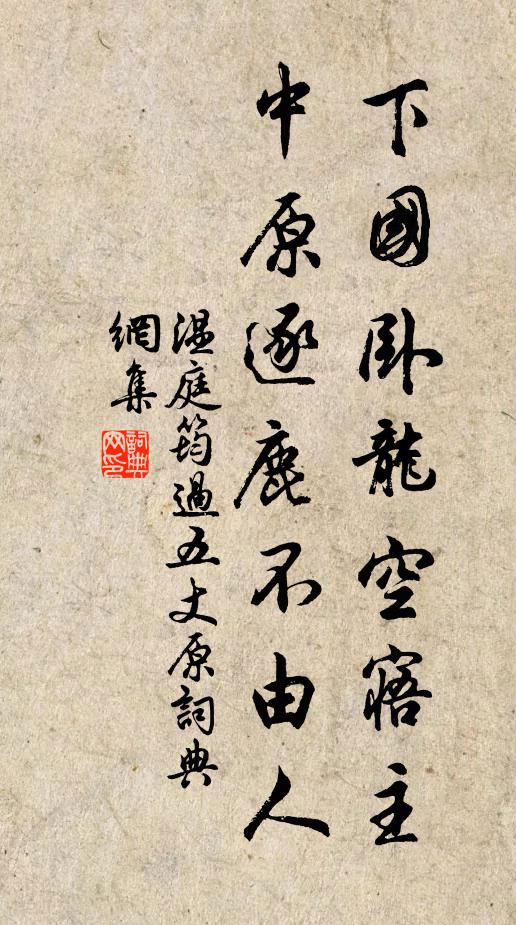 下國卧龍空寤主
中原逐鹿不由人
温庭筠過五丈原詞典
網集
詞典
网印